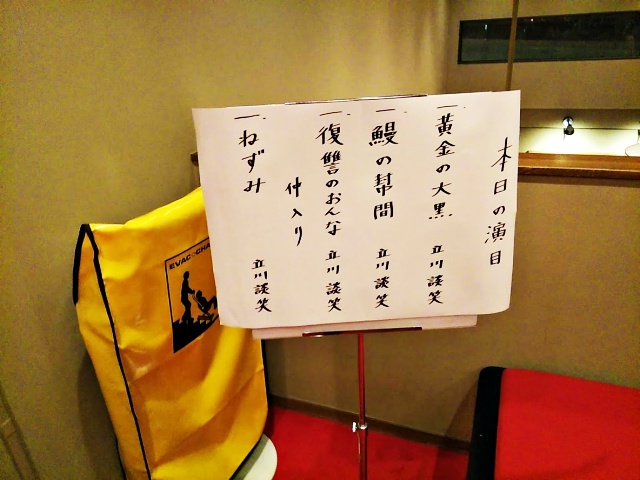 本日の演目
一. 黄金の大黒 立川談笑
一. 鰻の幇間 立川談笑
一. 復讐のおんな 立川談笑
仲入り
一. ねずみ 立川談笑